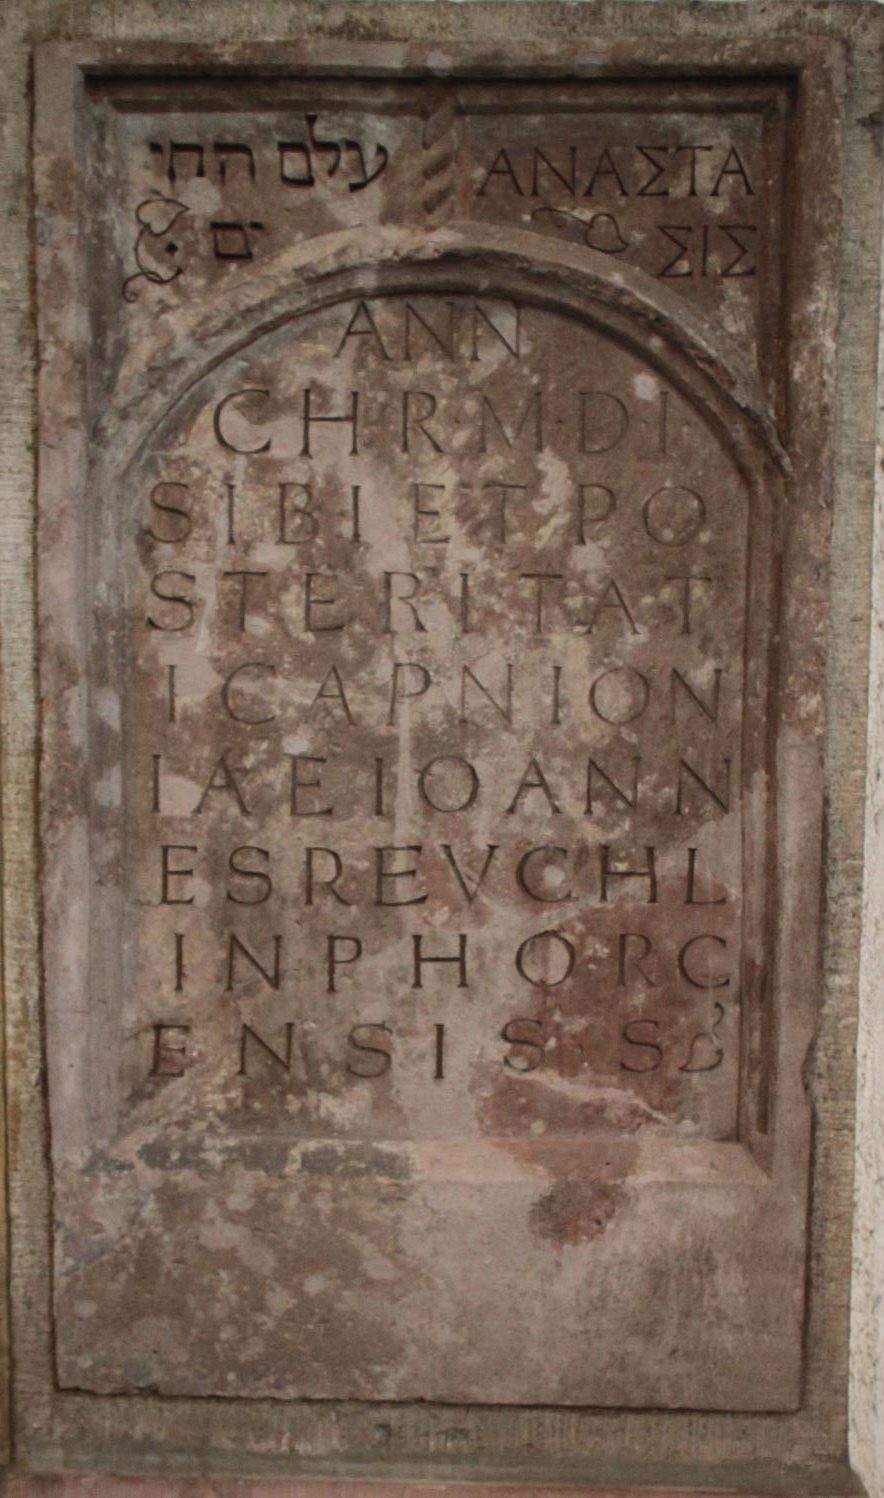 עולם התחי
ים
ΑΝΑΣΤΑ
ΣΙΣ
ANN
CHR·M·D·I·
SIBI ET PO
STERITAT
I CAPNION
IAE IOANN
ES REVCHL
IN PHORC
ENSIS S·S